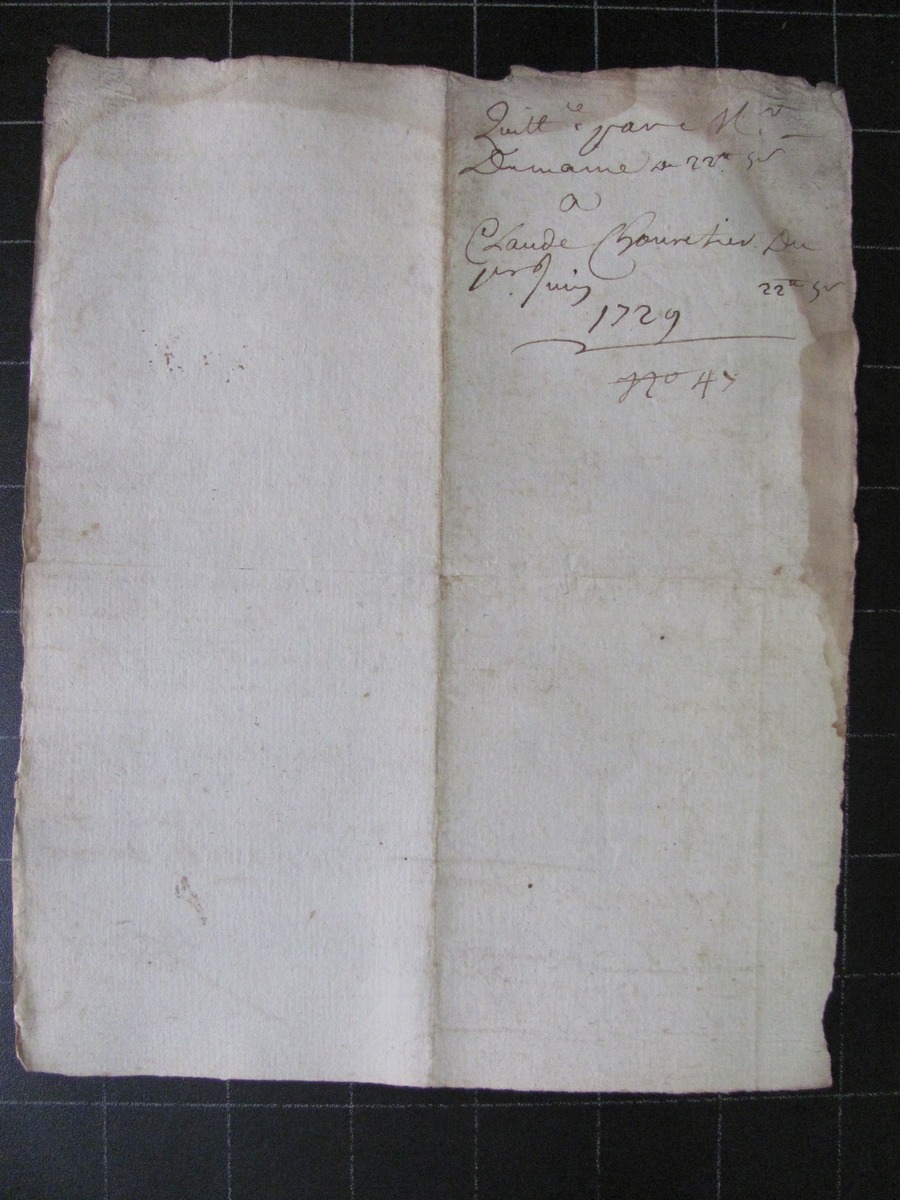 Quitt.ce par Mr
Dumaine de 22tt 5s
a
Claude Chouretier. Du
1er Juin 22tt 5s
1729
No 47